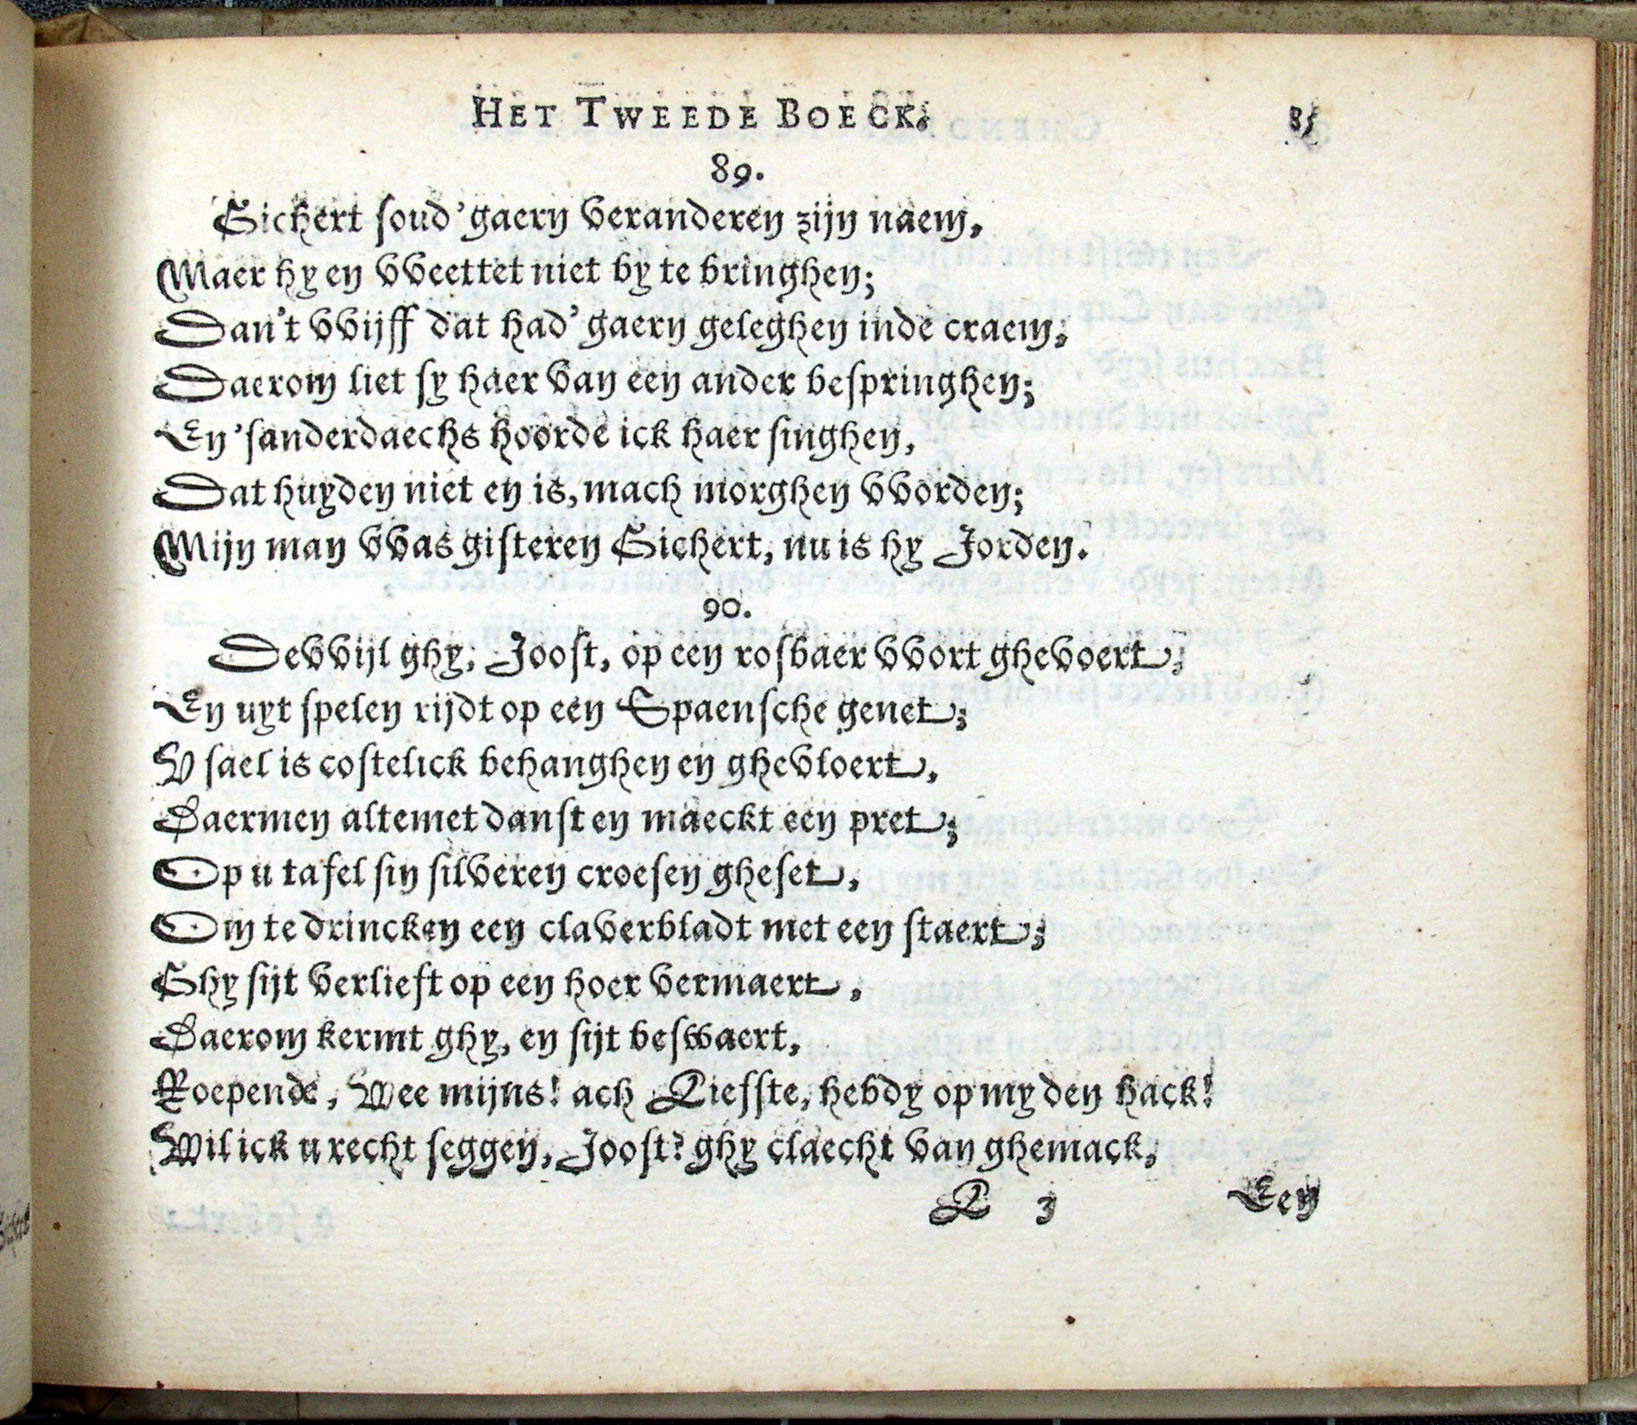 HET TWEEDE BOECK. 85
89.
Sichert soud'gaern veranderen zijn naem,
Maer hy en vveettet niet by te bringhen;
Dan't vvijff dat had'gaern geleghen inde craem,
Daerom liet sy haer van een ander bespringhen;
En'sanderdaechs hoorde ick haer singhen,
Dat huyden niet en is, mach morghen vvorden;
Mijn man vvas gisteren Sichert, nu is hy Jorden.
90.
Devvijl ghy, Joost, op een rosbaer vvort ghevoert,
En uyt spelen rijdt op een Spaensche genet;
V sael is costelick behanghen en ghevloert,
Daermen altemet danst en maeckt een pret;
Op u tafel sin silveren croesen gheset,
Om te drincken een claverbladt met een staert;
Ghy sijt verlieft op een hoer vermaert,
Daerom kermt ghy, en sijt beswaert,
Roepende, Wee mijns! ach Liefste, hebdy op my den hack!
Wil ick u recht seggen, Joost? ghy claecht van ghemack,
L 3 Een